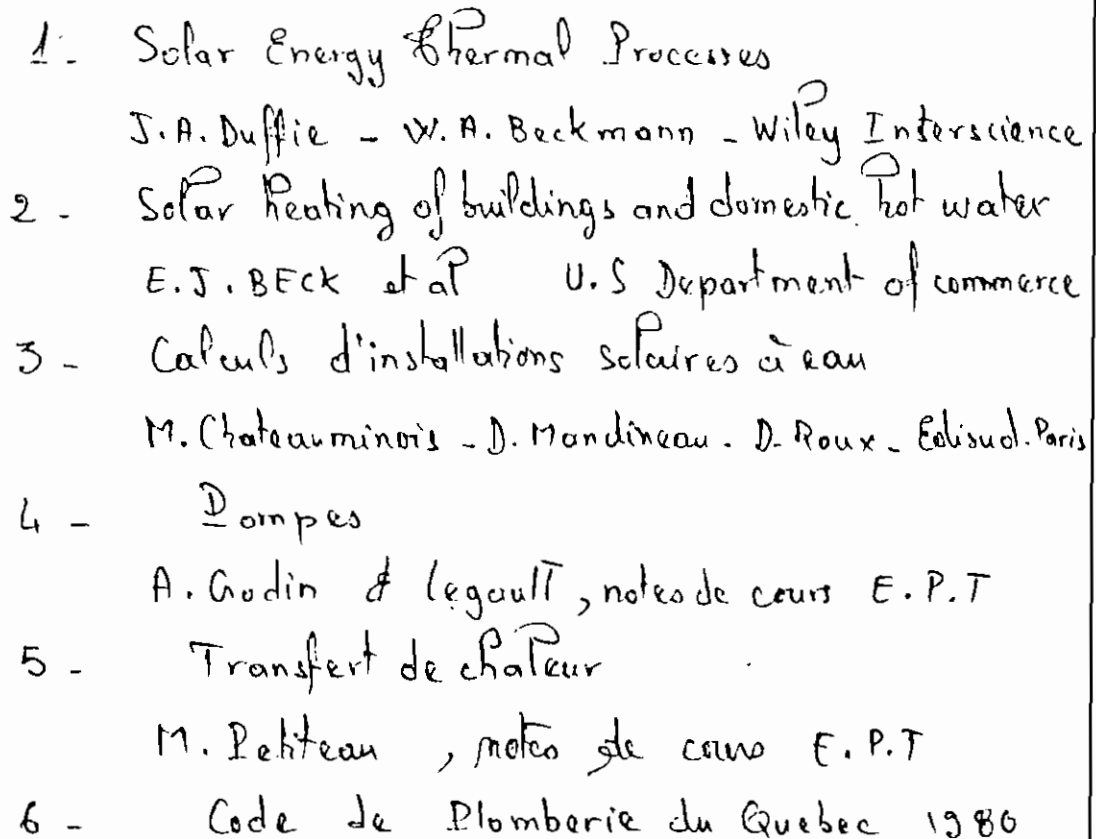 1. Solar Energy Thermal Processes
J.A. Duffie - W.A. Beckmann - Wiley Interscience
2 - Solar heating of buildings and domestic hot water
E.J. BECK et al U.S Department of commerce
3 - Calculs d'installations solaires à eau
M. Chateauminois - D. Mandineau. D. Roux - Edisud. Paris
4 - Pompes
A. Godin & Legault, notes de cours E.P.T
5 - Transfert de chaleur
M. Petiteau, notes de cours E.P.T
6 - Code de Plomberie du Quebec 1980